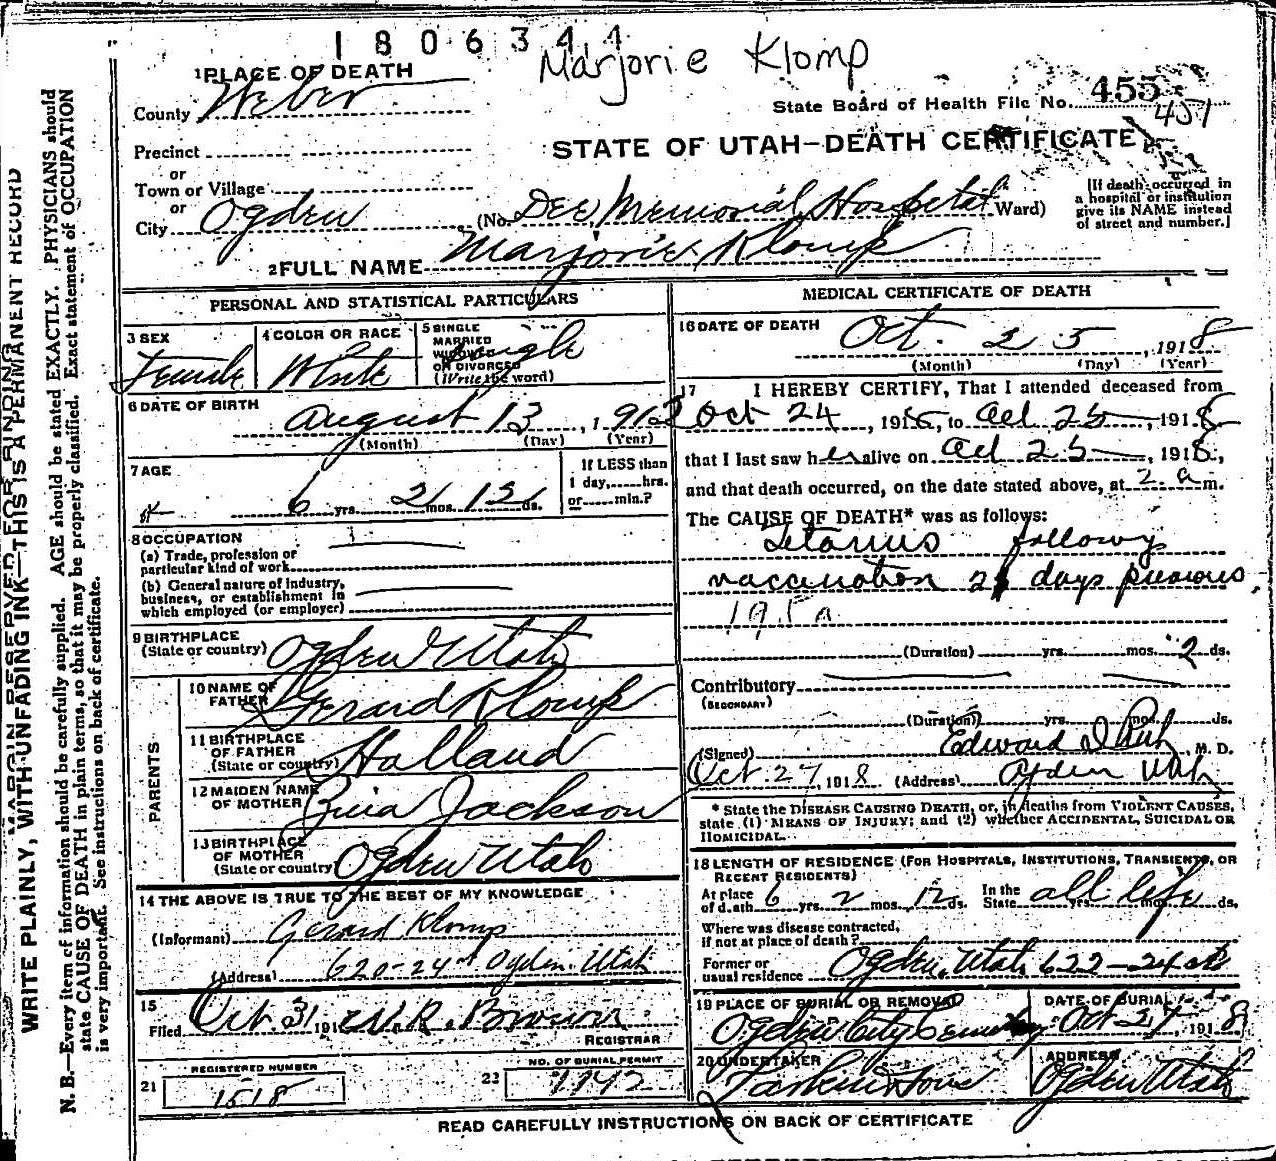 1806344
Marjorie Klomp
1 PLACE OF DEATH
County Weber
State Board of Health File No. 455
451
Precinct
STATE OF UTAH—DEATH CERTIFICATE
or
Town or Village
or
City Ogden
(No. Dee Memorial Hospital Ward)
[If death occurred in
a hospital or institution
give its NAME instead
of street and number.]
2 FULL NAME Marjorie Klomp
PERSONAL AND STATISTICAL PARTICULARS
3 SEX
Female
4 COLOR OR RACE
White
5 SINGLE
MARRIED
WIDOWED
OR DIVORCED
(Write the word)
Single
6 DATE OF BIRTH
August 13, 1912
(Month) (Day) (Year)
7 AGE
6 yrs. 2 mos. 12 ds.
If LESS than
1 day, hrs.
or min.?
8 OCCUPATION
(a) Trade, profession or
particular kind of work
(b) General nature of industry,
business, or establishment in
which employed (or employer)
9 BIRTHPLACE
(State or country) Ogden Utah
PARENTS
10 NAME OF
FATHER Gerard Klomp
11 BIRTHPLACE
OF FATHER
(State or country) Holland
12 MAIDEN NAME
OF MOTHER Jackson
13 BIRTHPLACE
OF MOTHER
(State or country) Ogden Utah
14 THE ABOVE IS TRUE TO THE BEST OF MY KNOWLEDGE
(Informant) Gerard Klomp
(Address) 620-24st Ogden. Utah
15
Filed Oct 31 191
REGISTRAR
21 REGISTERED NUMBER
1518
22 NO. OF BURIAL PERMIT
1742
MEDICAL CERTIFICATE OF DEATH
16 DATE OF DEATH
Oct. 25, 1918
(Month) (Day) (Year)
17 I HEREBY CERTIFY, That I attended deceased from
Oct 24, 1918, to Oct 25, 1918,
that I last saw her alive on Oct 25, 1918,
and that death occurred, on the date stated above, at 2 a m.
The CAUSE OF DEATH* was as follows:
Tetanus followg
vaccination days previous
(Duration) yrs. mos. 2 ds.
Contributory
(SECONDARY)
(Duration) yrs. mos. ds.
(Signed) Edward I Rich, M. D.
Oct. 27, 1918 (Address) Ogden Utah
* State the DISEASE CAUSING DEATH, or, in deaths from VIOLENT CAUSES,
state (1) MEANS OF INJURY; and (2) whether ACCIDENTAL, SUICIDAL OR
HOMICIDAL.
18 LENGTH OF RESIDENCE (FOR HOSPITALS, INSTITUTIONS, TRANSIENTS, OR
RECENT RESIDENTS)
At place
of death 6 yrs. 2 mos. 12 ds.
In the
State all life yrs. mos. ds.
Where was disease contracted,
if not at place of death?
Former or
usual residence Ogden, Utah 622-24 st
19 PLACE OF BURIAL OR REMOVAL
Ogden City Cemetery
DATE OF BURIAL
Oct 27, 1918
20 UNDERTAKER
Larkin & Sons
ADDRESS
Ogden Utah
READ CAREFULLY INSTRUCTIONS ON BACK OF CERTIFICATE
MARGIN RESERVED FOR BINDING
WRITE PLAINLY, WITH UNFADING INK—THIS IS A PERMANENT RECORD
N. B.—Every item of information should be carefully supplied. AGE should be stated EXACTLY. PHYSICIANS should
state CAUSE OF DEATH in plain terms, so that it may be properly classified. Exact statement of OCCUPATION
is very important. See instructions on back of certificate.